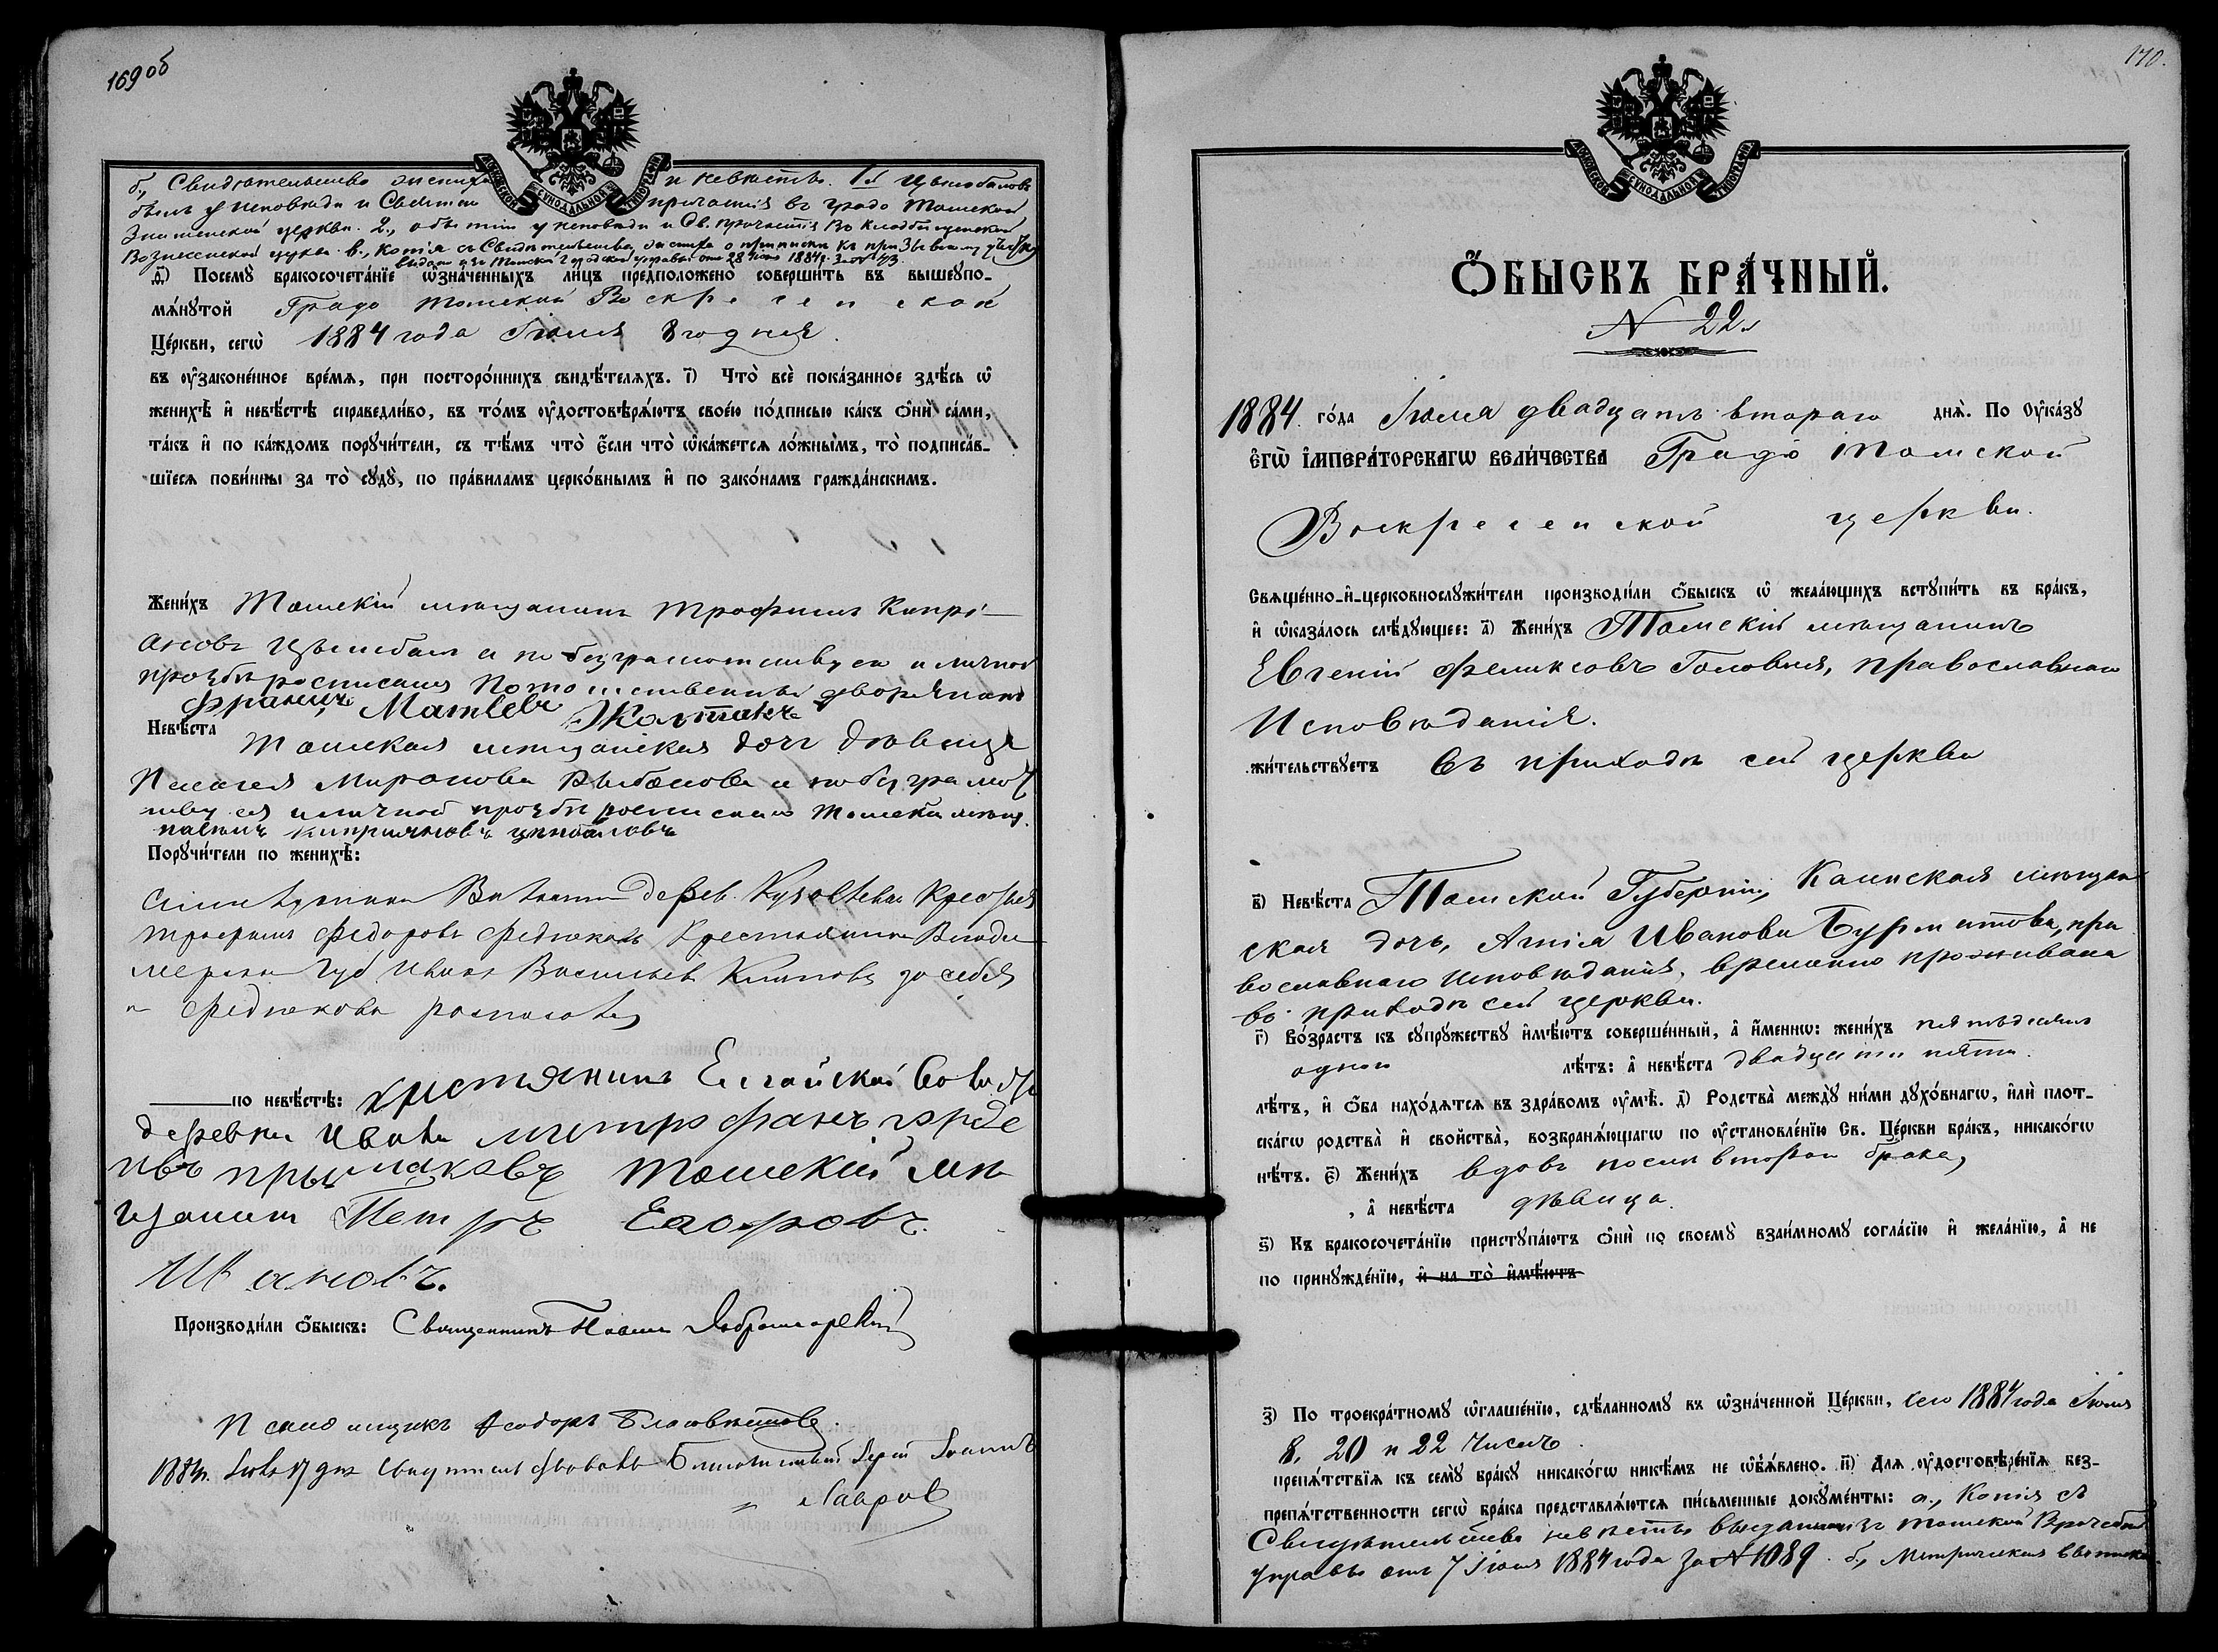 169 об
МОСКОВСКОЙ СѴНОДАЛЬНОЙ ТИПОГРАФІИ
б., Свидѣтельство жениха и невѣсты. 1.,
былъ у исповѣди и Святаго причастія въ градо Томской
Знаменской церкви. 2., у исповѣди и Св. причастія
Вознесенской церкви. в., Копія съ Свидѣтельства, жениха о припискѣ къ призывному участку
выдана изъ Томской Городской управы отъ 28 1884 г. за № 43.
д҃) Посемꙋ бракосочета́нїе ѡ҆зна́ченныхъ ли́цъ предположено̀ соверши́ть въ вышеꙋпо-
мѧ́нꙋтой Градо Томской Воскресенской
Це́ркви, сегѡ̀ 1884 года Іюля 8го дня.
въ ᲂу҆зако́ненное вре́мѧ, при посторо́ннихъ свидѣ́телѧхъ. ї҃) Что̀ всѐ пока́занное здѣ́сь ѡ҆
женихѣ̀ и҆ невѣ́стѣ справедли́во, въ то́мъ ᲂу҆достовѣрѧ́ютъ свое́ю по́дписью ка́къ ѻ҆нѝ са́ми,
та́къ и҆ по ка́ждомъ порꙋчи́тели, съ тѣ́мъ что̀ є҆́сли что̀ ѡ҆ка́жетсѧ ло́жнымъ, то̀ подписа́в-
шїесѧ пови́нны за то̀ сꙋдꙋ̀, по пра́виламъ церко́внымъ и҆ по зако́намъ гражда́нскимъ.
Жени́хъ Томскій мѣщанинъ Трофимъ Кипрі-
ановъ а по безграмотству его и личной
прозьбѣ росписался Потомственный дворянинъ
Францъ Матвеевъ Жолтакъ
Невѣ́ста Томская мѣщанская дочь дѣвица
Пелагея Миронова а по безграмот
ству ея и личной прозьбѣ росписался Томскій мѣщ.
киприяновъ
Порꙋчи́тели по женихѣ̀:
дерев. Крестьян
Трофимъ Федоровъ Федюковъ Крестьянинъ Влади
мерской Губ Иванъ Васильевъ Климовъ за себя
и Федюкова
по невѣ́стѣ: крестянинъ Елгайской волости
деревни митрофанъ горде
ивъ Томскій мѣ
щанинъ Петръ Егоровъ
Ивановъ.
Производи́ли ѻ҆́быскъ: Священникъ Павелъ
Псаломщикъ Ѳеодоръ Благовѣстовъ.
1884 г. 17 дня свидѣтельствовалъ Благочинный Іерей Іоаннъ
Лавровъ
170.
МОСКОВСКОЙ СѴНОДАЛЬНОЙ ТИПОГРАФІИ
Ѻ҆́БЫСКЪ БРА́ЧНЫЙ.
№ 22й
1884. го́да Іюля двадцать втораго днѧ̀. По Оу҆ка́зꙋ
Є҆ГѠ̀ І҆МПЕРА́ТОРСКАГѠ ВЕЛИ́ЧЕСТВА Градо Томской
Воскресенской церкви.
Свѧще́нно-и҆-церковнослꙋжи́тели производи́ли ѻ҆́быскъ ѡ҆ жела́ющихъ встꙋпи́ть въ бра́къ,
и҆ ѡ҆каза́лось слѣ́дꙋющее: а҃) Жени́хъ Томскій мѣщанинъ
Евгеній Феликсовъ Головня, православнаго
Исповѣданія.
жи́тельствꙋетъ въ приходѣ сей церкви
в҃) Невѣ́ста Томской Губерніи, Каинская мѣщан
ская дочь, Анна Иванова Бурматова, пра
вославнаго исповѣданія, временно проживала
въ приходѣ сей церкви.
г҃) Во́зрастъ къ сꙋпрꙋ́жествꙋ и҆мѣ́ютъ соверше́нный, а҆ и҆́меннѡ: жени́хъ пятьдесятъ
одного лѣ́тъ: а҆ невѣ́ста двадцати пяти.
лѣ́тъ, и҆ ѻ҆́ба нахо́дѧтсѧ въ здра́вомъ ᲂу҆мѣ̀. д҃) Родства̀ междꙋ̀ ни́ми дꙋхо́внагѡ, и҆лѝ пло́т-
скагѡ родства̀ и҆ сво́йства, возбранѧ́ющагѡ по ᲂу҆становле́нїю Св. Це́ркви бра́къ, никако́гѡ
нѣ́тъ. є҃) Жени́хъ вдовъ послѣ втораго брака,
, а҆ невѣ́ста дѣвица.
ѕ҃) Къ бракосочета́нїю пристꙋпа́ютъ ѻ҆нѝ по своемꙋ̀ взаи́мномꙋ согла́сїю и҆ жела́нїю, а҆ не
по принꙋжде́нїю, и҆ на то̀ и҆мѣ́ютъ
з҃) По троекра́тномꙋ ѡ҆глаше́нїю, сдѣ́ланномꙋ въ ѡ҆зна́ченной Це́ркви, сего 1884 года Іюля
8, 20 и 22 чиселъ.
препѧ́тствїѧ къ семꙋ̀ бра́кꙋ никако́гѡ никѣ́мъ не ѡ҆б̾ѧ́влено. и҃) Длѧ ᲂу҆достовѣре́нїѧ без-
препѧ́тственности сегѡ̀ бра́ка представлѧ́ютсѧ пи́сьменные докꙋме́нты: а., Копія съ
Свидѣтельства невѣсты выданная изъ Томской Врачебной
управы отъ 7 Іюля 1884 года за № 1089. б., Метрическая выписка